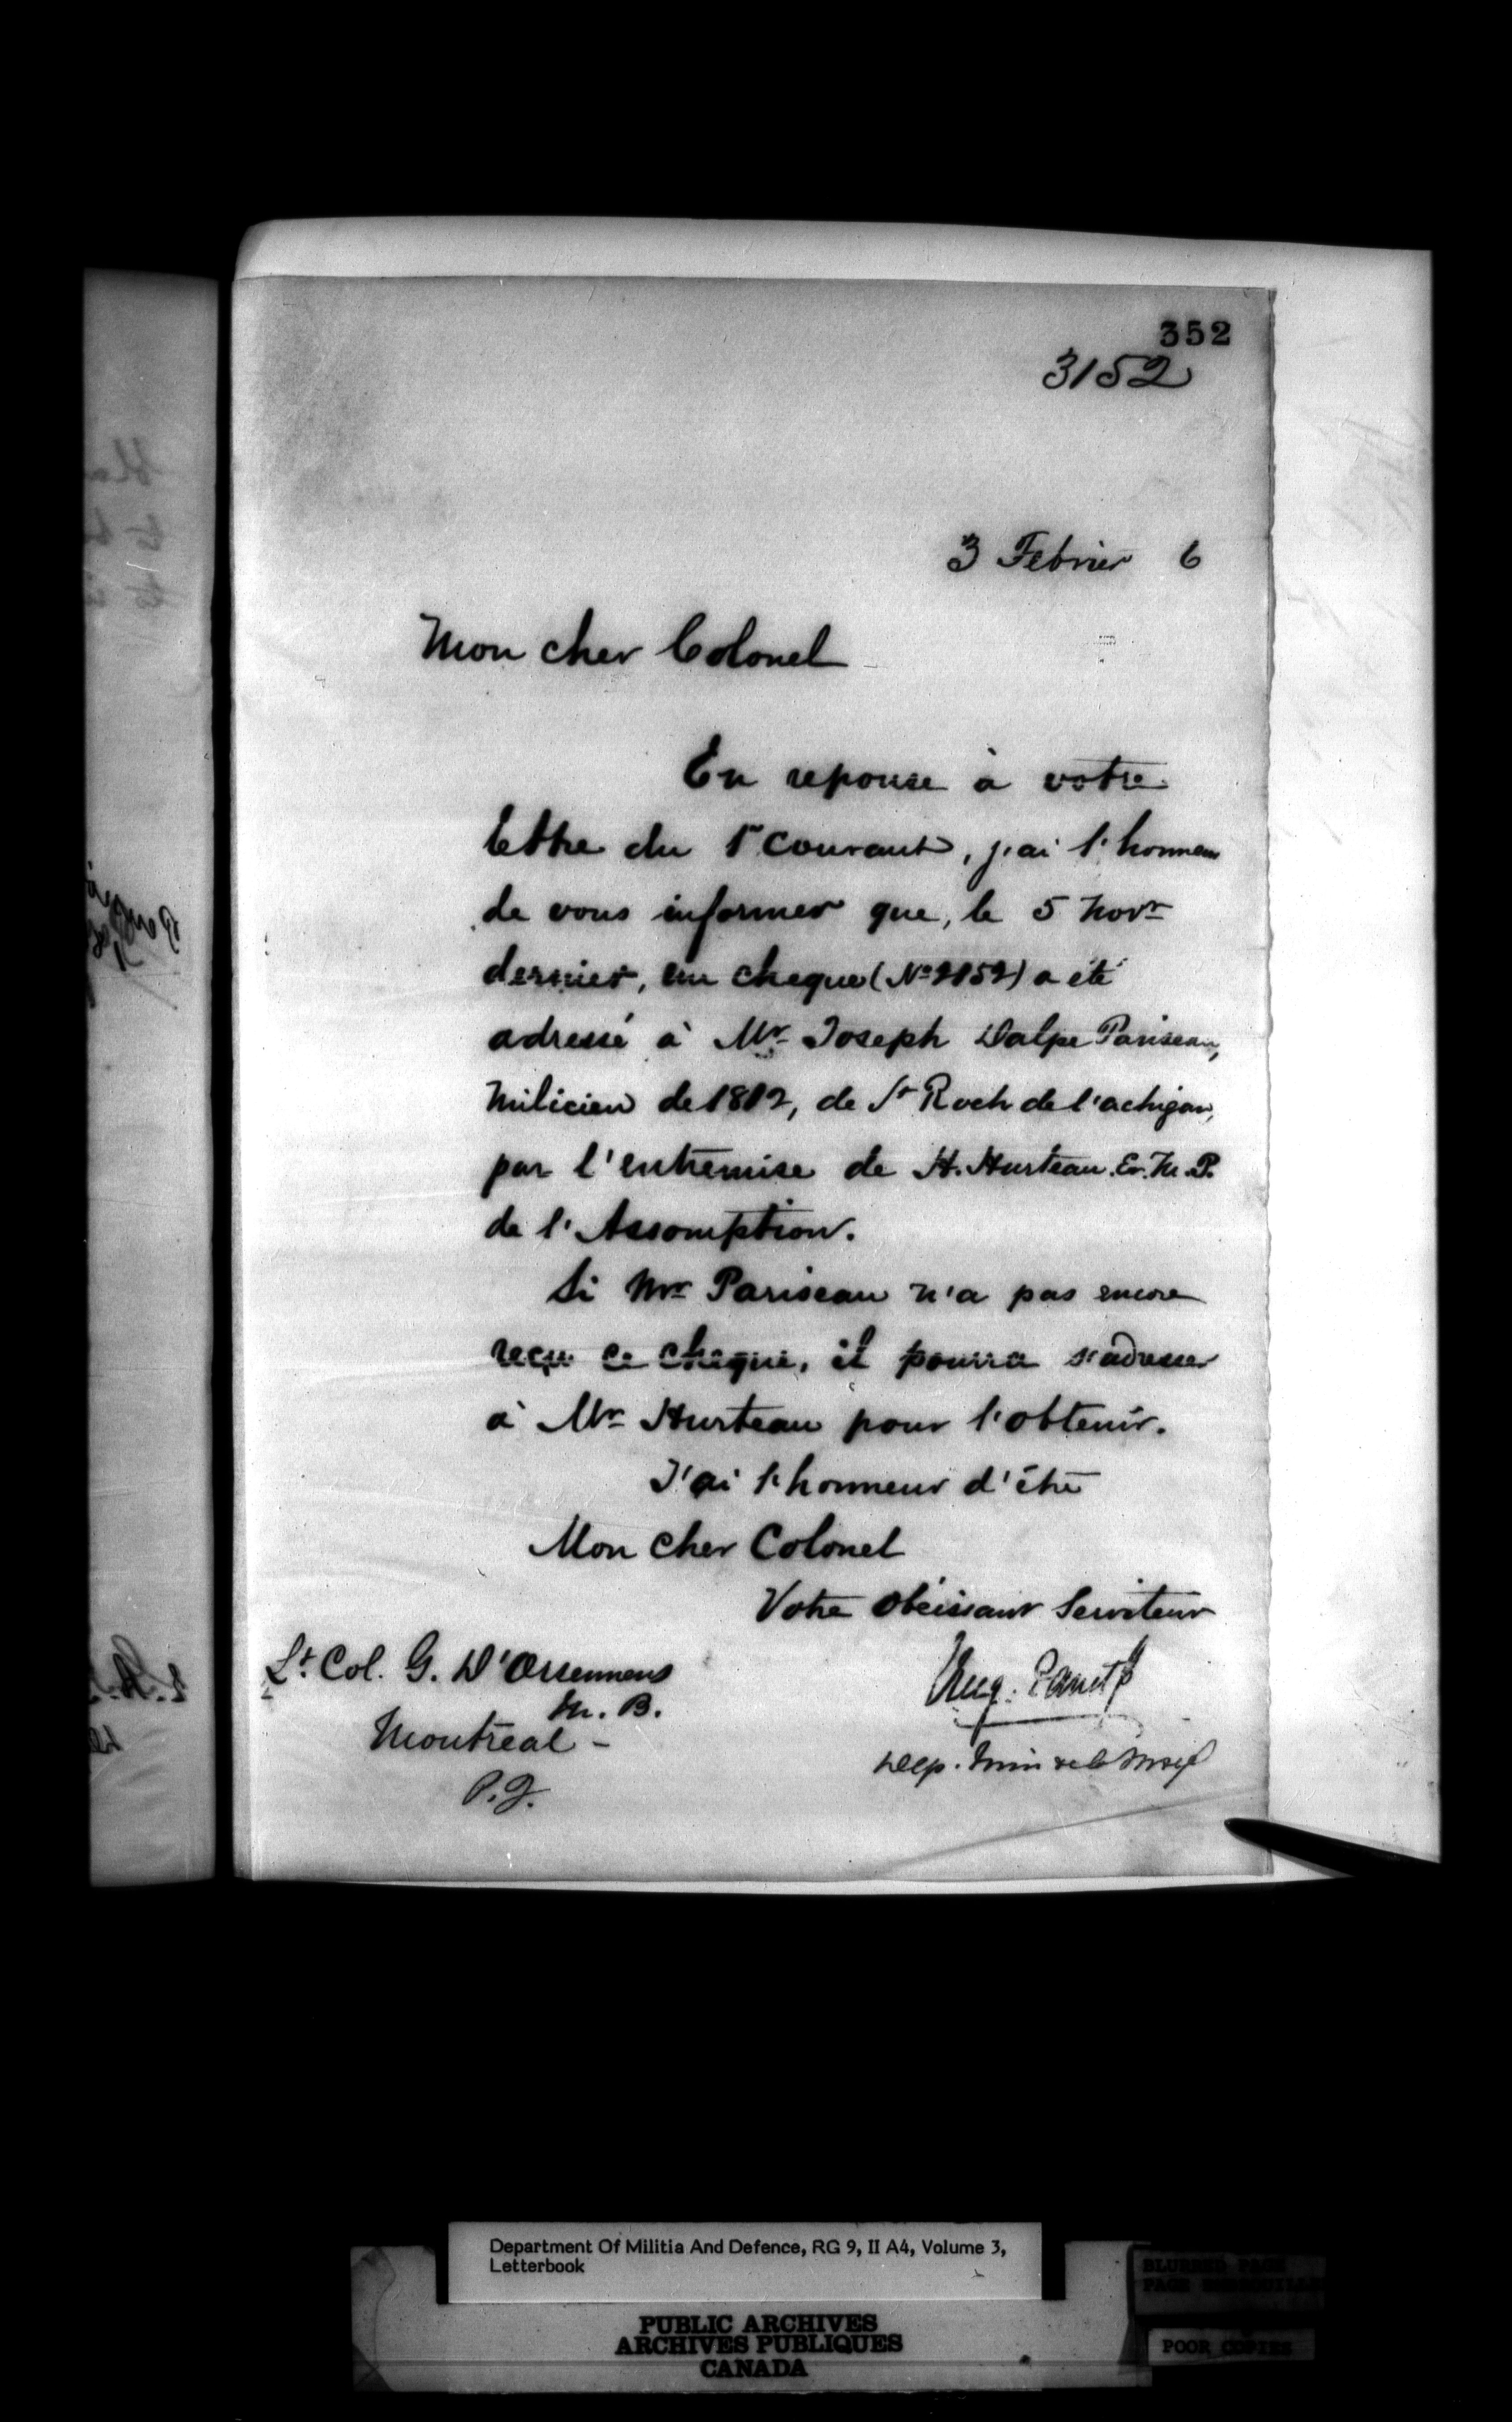 352
3152
3 Febrier 6
Mon cher Colonel
En reponse à votre
lettre du 1er courant, j'ai l'honneur
de vous informer que, le 5 Novr
dernier, un cheque (No 2152) a été
adressé à Mr Joseph Dalpe Pariseau,
Milicien de 1812, de St Roch de l'achigan,
par l'entremise de H. Hurteau. Er. M. P.
de l'Assomption.
Si Mr Pariseau n'a pas encore
reçu ce cheque, il pourra s'adresser
à Mr Hurteau pour l'obtenir.
J'ai l'honneur d'être
Mon cher Colonel
Votre obéissant Serviteur
Lt. Col. G. D'Orsennens
M. B.
Montreal -
P.Q.
Aug. Panet
Dep. Min de la
Department Of Militia And Defence, RG 9, II A4, Volume 3,
Letterbook
PUBLIC ARCHIVES
ARCHIVES PUBLIQUES
CANADA
BLURRED PAGE
PAGE
POOR COPIES